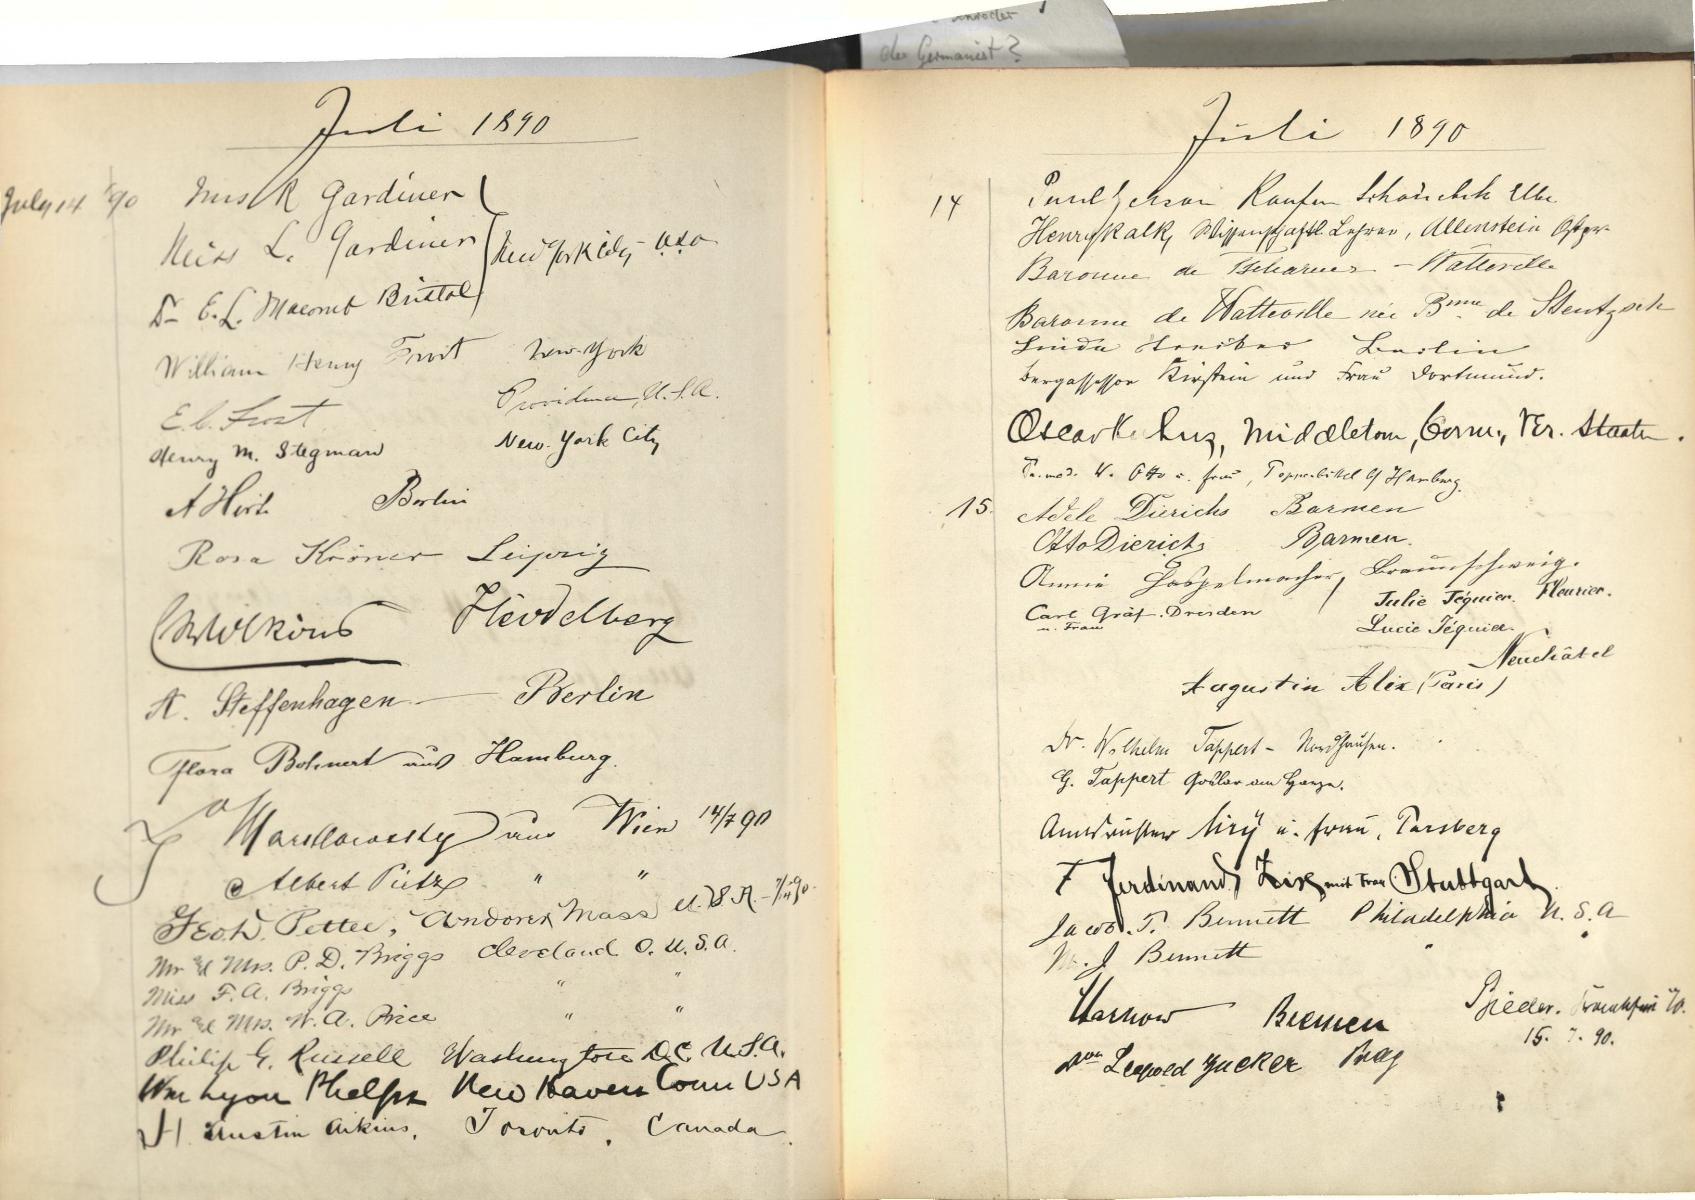 der Germanist?
Juli 1890
July 14 '90 Miss R Gardiner
Miss L. Gardiner New York City U.S.A
Dr E. L. Macomb Bristol
William Henry Frost New-York
E. C. Frost Providence, U.S.A.
Henry M. Stegman New-York City
A Hirt Berlin
Rosa Kröner Leipzig
Wilkins Heidelberg
A. Steffenhagen — Berlin
Flora Bohnert aus Hamburg.
aus Wien 14/7 90
Albert Pietz " "
Geo. D. Pettee, Andover Mass U.S.A.
Mr & Mrs. P. D. Briggs Cleveland O. U.S.A.
Miss F. A. Briggs " "
Mr & Mrs. W. A. Price " "
Philip G. Russell Washington D.C. U.S.A.
Wm Lyon Phelps New Haven Conn USA
H. Austin Aikins, Toronto, Canada.
Juli 1890
14 Paul Schönebeck Elbe
Henry Kalk, Wissenschaftl. Lehrer, Allenstein Ostpr.
Baronne de Tscharner - Watteville
Baronne de Watteville née Bnne de Stentzsch
Berlin
Bergassessor Kirstein und Frau Dortmund.
Oscar Middletom, Conn., Ver. Staaten.
Dr. med. Otto u. Frau, Hamburg.
15. Adele Dierichs Barmen
Otto Dierichs Barmen.
Annie Haspelmacher, Braunschweig.
Carl Gräf. Dresden
u. Frau
Julie Jéquier. Fleurier.
Lucie Jéquier.
Neuchâtel
Augustin Alix (Paris)
Dr. Wilhelm Tappert - Nordhausen.
G. Tappert Goslar am Harze.
Amtsrichter u. Frau, Parsberg
Ferdinand mit Frau Stuttgart.
Jacob T. Bennett Philadelphia U.S.A
M. J Bennett "
Warnow Bremen
Frankfurt a/O.
15. 7. 90.
von Leopold Zucker Prag